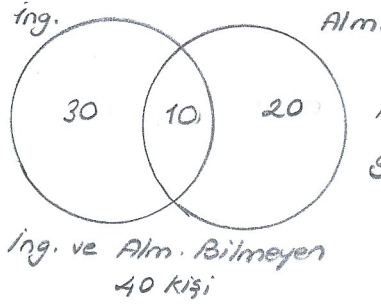 İng.
Alm.
30
10
20
İng. ve Alm. Bilmeyen
40 kişi